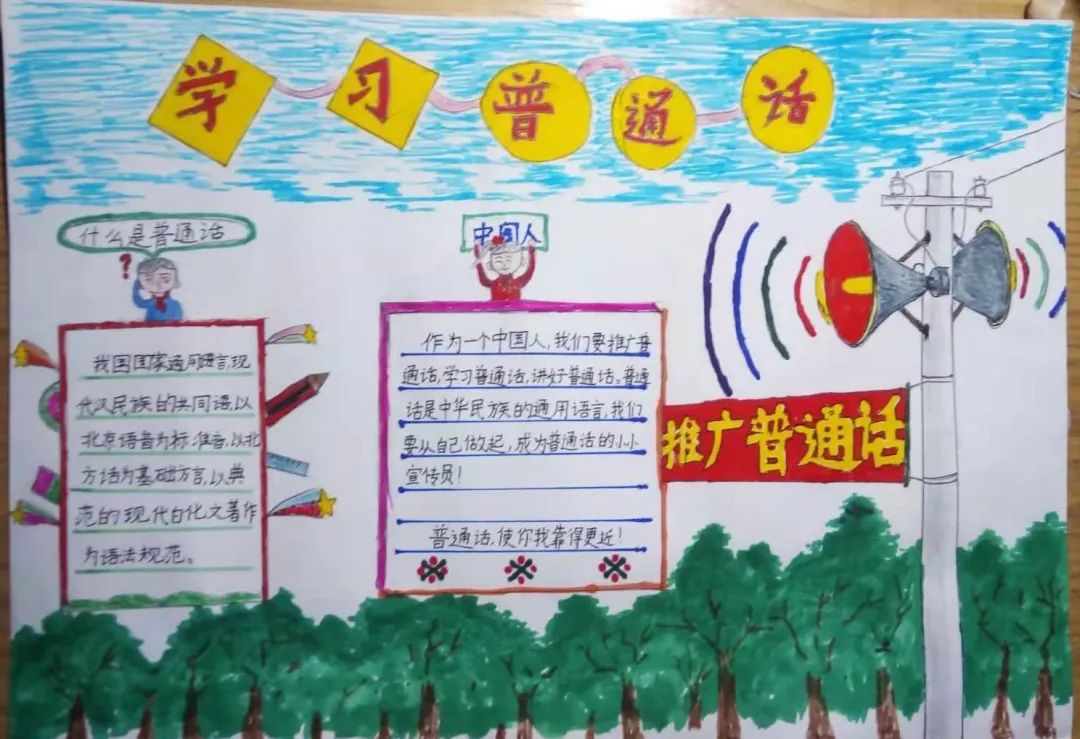 学习普通话
什么是普通话
?
我国国家通用语言,现
代汉民族的共同语,以
北京语音为标准音,以北
方话为基础方言,以典
范的现代白化文著作
为语法规范。
中国人
作为一个中国人,我们要推广普
通话,学习普通话,讲好普通话。普通
话是中华民族的通用语言,我们
要从自己做起,成为普通话的小小
宣传员!
普通话,使你我靠得更近!
推广普通话